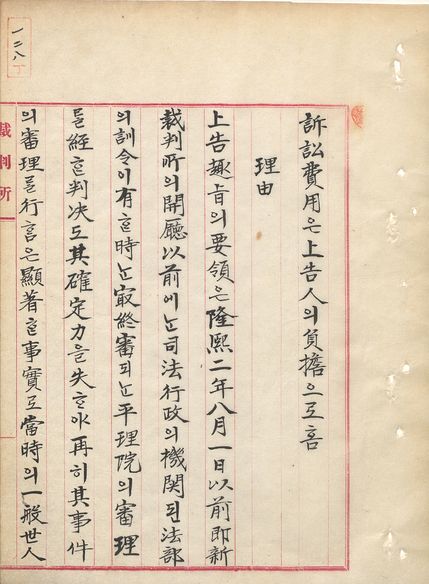 訴訟費用은上告人의負擔으로홈
理由
上告趣旨의要領은隆熙二年八月一日以前即新
裁判所의開廳以前에ᄂᆞᆫ司法行政의機關된法部
의訓令이有ᄒᆞᆫ時ᄂᆞᆫ㝡終審되ᄂᆞᆫ平理院의審理
를經ᄒᆞᆫ判决도其確定力을失ᄒᆞ야再히其事件
의審理를行홈은顯著ᄒᆞᆫ事實로當時의一般世人
裁判所
一二八丁